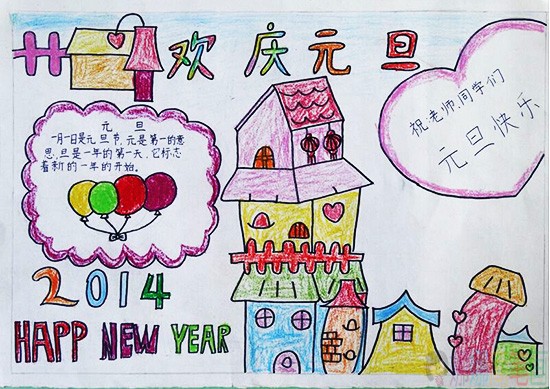 欢庆元旦
祝老师、同学们
元旦快乐
元 旦
一月一日是元旦节,元是第一的意
思,旦是一年的第一天,它标志
着新的一年的开始。
2014
HAPP NEW YEAR